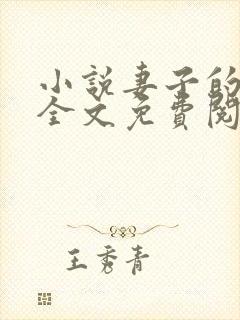 小説妻子的
全文免費閱
王秀青